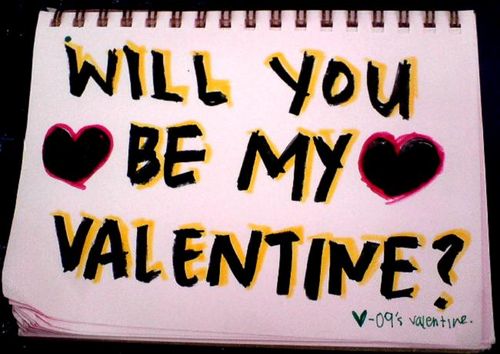 WILL YOU
BE MY
VALENTINE?
♥-09's valentine.